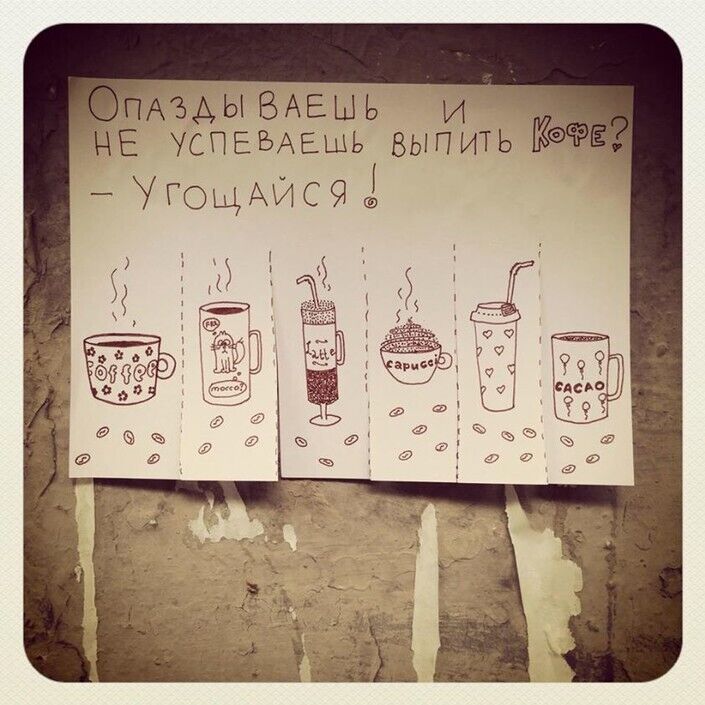 Опаздываешь и
не успеваешь выпить Кофе?
– Угощайся!
Coffee
FRR
mocco?
Latte
capucci
CACAO